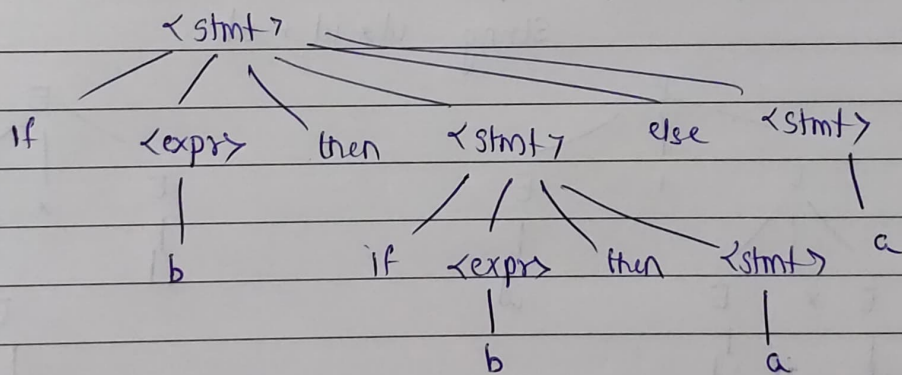 <stmt>
if <expr> then <stmt> else <stmt>
b if <expr> then <stmt> a
b a